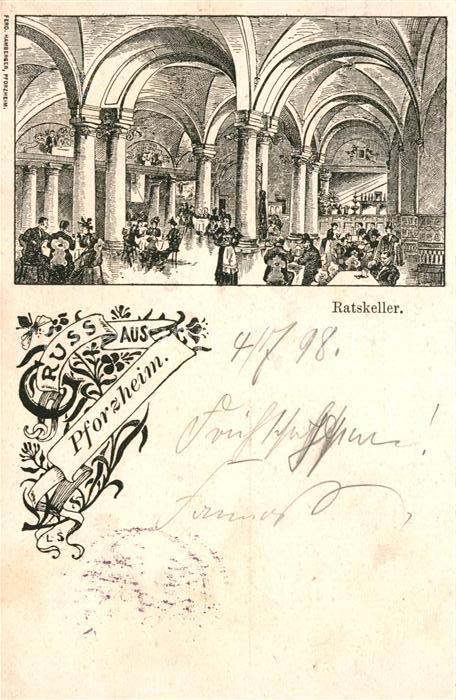 FERD. HAMBERGER, PFORZHEIM.
Ratskeller.
GRUSS AUS
Pforzheim.
L S
4/7 98.
Frühschoppen!